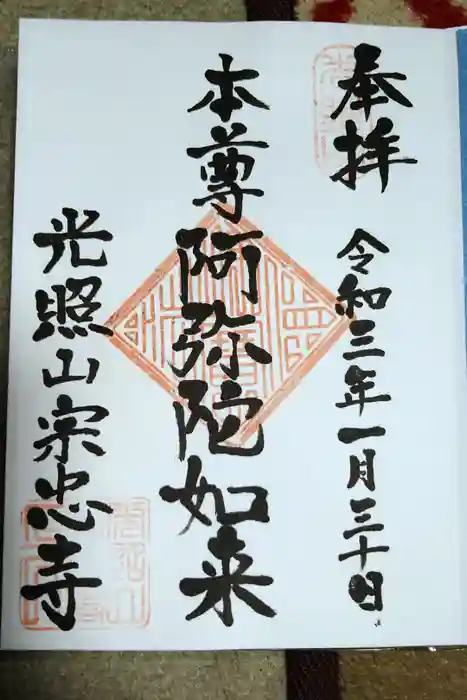 奉拝 令和三年一月三十日
本尊阿弥陀如来
光照山宗忠寺